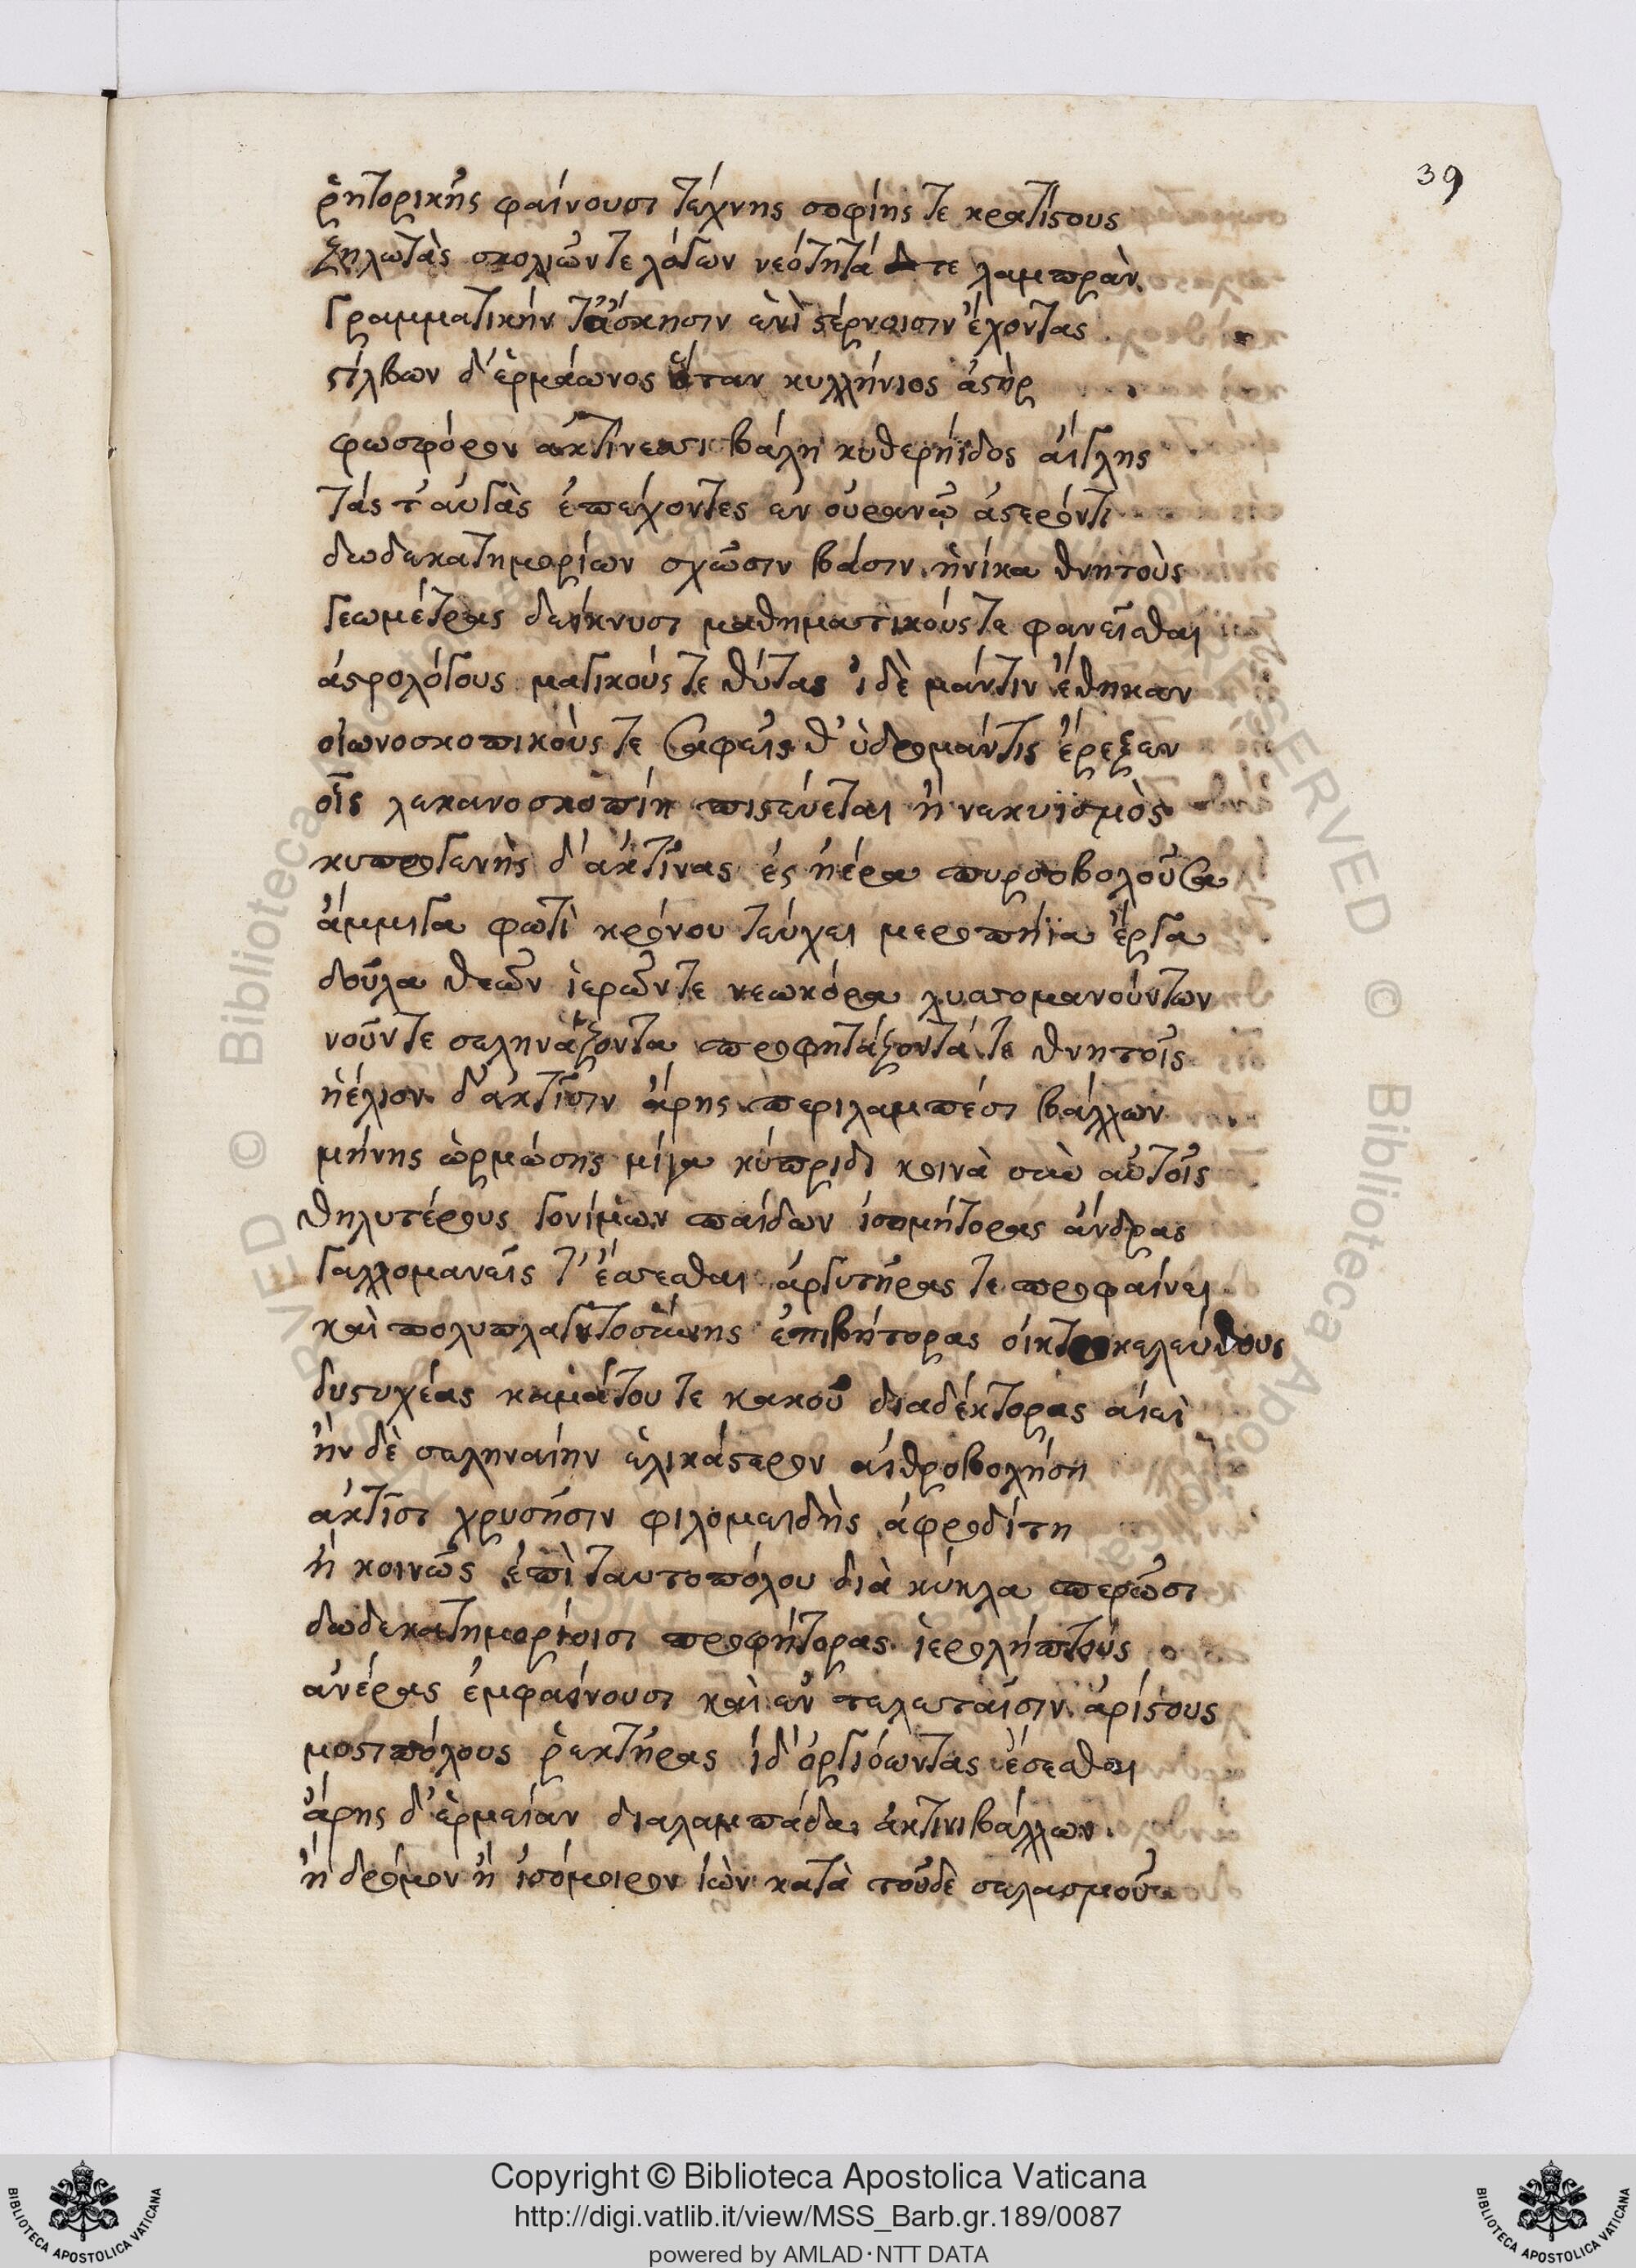 39
ῥητορικῆς φαίνουσι τέχνης σοφίης τε κρατίστους
ζηλωτὰς σκολιῶν τε λόγων νεότητά τε λαμπρὰν
γραμματικήν τ' ἄσκησιν ἐνὶ στέρνοισιν ἔχοντας
στίλβων δ' ἑρμάωνος ὅταν κυλλήνιος ἀστὴρ
φωσφόρον ἀκτίνεσσι βάλη κυθερηίδος αἴγλης
τάς τ' αὐγὰς ἐπέχοντες ἐν οὐρανῷ ἀστερόντι
δωδεκατημορίων σχῶσιν βάσιν ἡνίκα θνητοὺς
γεωμέτρας δείκνυσι μαθηματικούς τε φανεῖσθαι
ἀστρολόγους μαγικούς τε θύτας ἰδὲ μάντιν ἔθηκαν
οἰωνοσκοπικοὺς τε σαφεῖς θ' ὑδρομάντις ἔρεξεν
οἷς λεκανοσκοπίη πιστεύεται ἢ νεκυϊσμὸς
κυπρογενὴς δ' ἀκτῖνας ἐς ἠέρα πυρσοβολοῦσα
ἄμμιγα φωτὶ κρόνου τεύχει μεροπήϊα ἔργα
δοῦλα θεῶν ἱερῶν τε νεωκόρα λυσσομανούντων
νοῦν τε σεληνάζοντα προφητάζοντά τε θνητοῖς
ἠέλιον δ' ἀκτῖσιν ἄρης περιλαμπέσι βάλλων
μήνης ὁρμώσης μίγα κύπριδι κοινὰ σὺν αὐτοῖς
θηλυτέρους γονίμων παίδων ἰσομήτορας ἄνδρας
γαλλομανεῖς τ' ἔσσεσθαι ἀργυτῆρας τε προφαίνει
καὶ πολυπλαγκτοσύνης ἐπιβήτορας οἰκτροκελεύθους
δυστυχέας καμάτου τε κακοῦ διαδέκτορας αἰεὶ
ἢν δὲ σεληναίην ἑλικάστερον αἰθροβολήση
ἀκτῖσι χρυσῆσιν φιλομειδὴς ἀφροδίτη
ἢ κοινῶς ἐπὶ ταυτοπόλου διὰ κύκλα περῶσι
δωδεκατημορίοισι προφήτορας ἱερολήπτους
ἀνέρας ἐμφαίνουσι καὶ ἐν τελεταῖσιν ἀρίστους
μυστιπόλους ῥεκτῆρας ἰδ' ὀργιόωντας ἔσεσθαι
ἄρης δ' ἑρμείαν διαλαμπάδα ἀκτινιβάλλων
ἢ δρόμον ἢ ἰσόμοιρον ἰὼν κατὰ τοῦδε σελασμοῦ
Copyright © Biblioteca Apostolica Vaticana
http://digi.vatlib.it/view/MSS_Barb.gr.189/0087
powered by AMLAD·NTT DATA
BIBLIOTECA APOSTOLICA VATICANA
BIBLIOTECA APOSTOLICA VATICANA